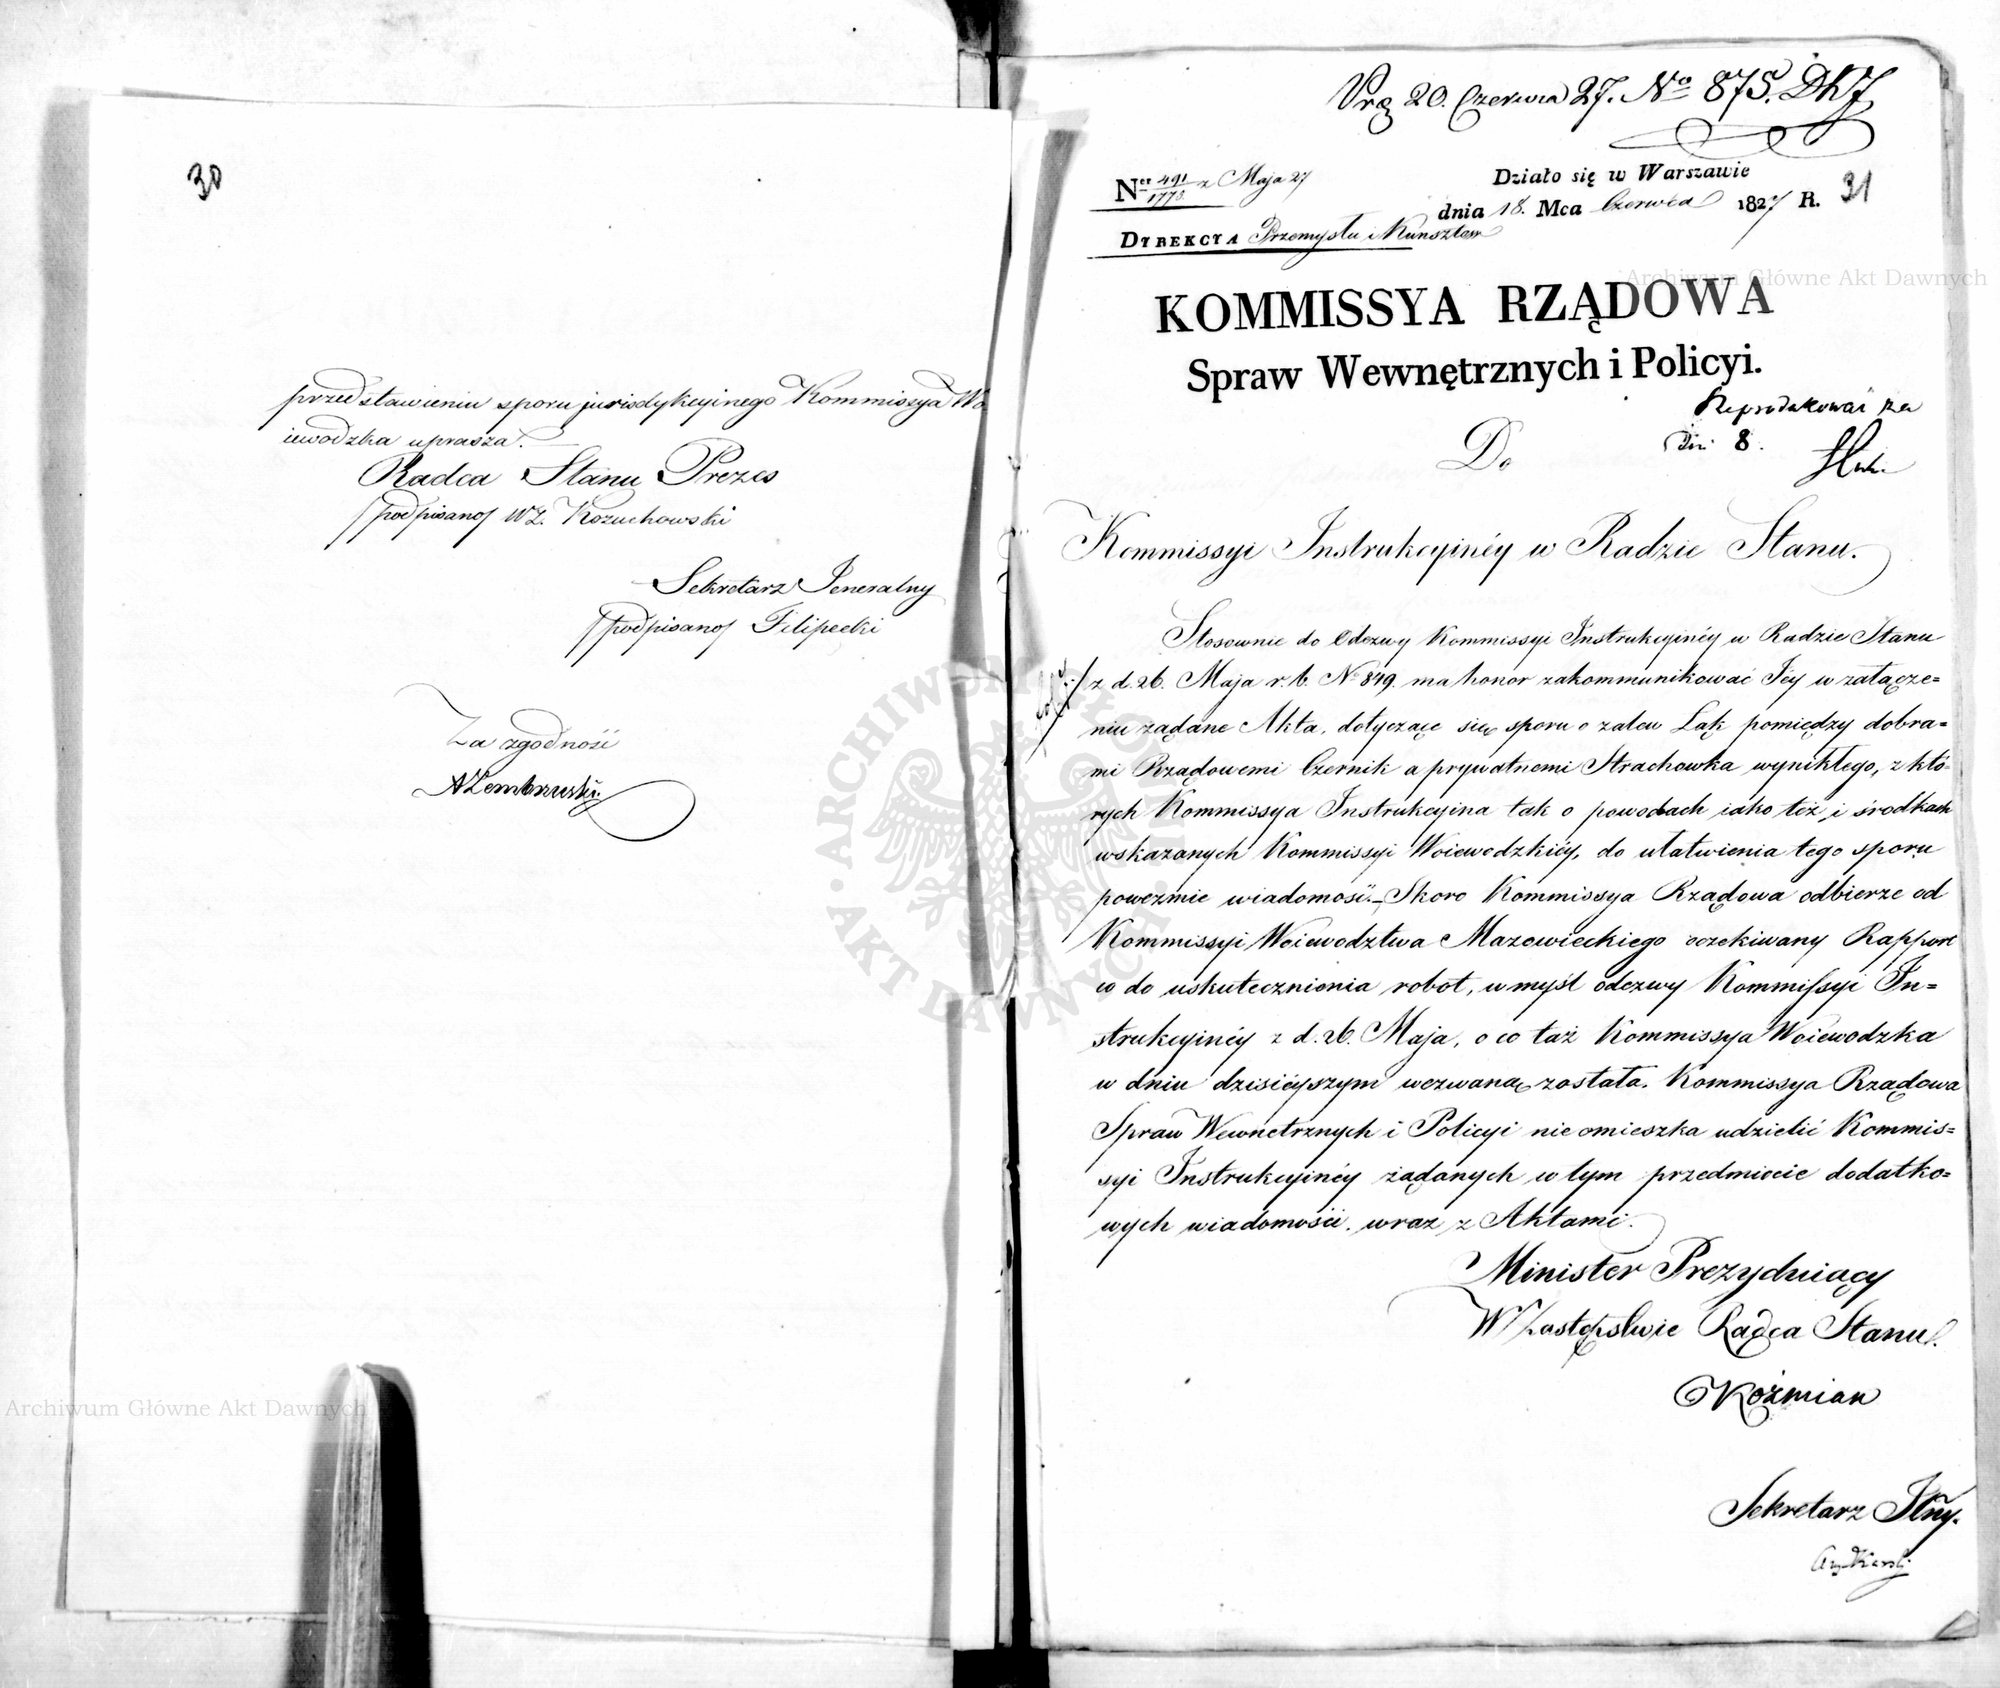 30
przedstawieniu sporu jurisdykcyinego Kommissya Wo
iewodzka uprasza.
Radca Stanu Prezes
/podpisano/ WZ. Kożuchowski
Sekretarz Jeneralny
/podpisano/ Filipecki
Za zgodność
AZembrzuski
20. Czerwca 27. No 875.
Działo się w Warszawie
Ner 491/1773 z Maja 27
dnia 18. Mca Czerwca 1827 R. 31
DYREKCYA Przemysłu i Kunsztow
KOMMISSYA RZĄDOWA
Spraw Wewnętrznych i Policyi.
Reprodukować za
Dni 8.
Do
Kommissyi Instrukcyinéy w Radzie Stanu.
Stosownie do Odezwy Kommissyi Instrukcyinéy w Radzie Stanu
z d. 26. Maja r. b. No 849. ma honor zakommunikować Jey w załącze=
niu żądane Akta, dotyczące się sporu o zalew Łąk pomiędzy dobra=
mi Rządowemi Czernik a prywatnemi Strachowka wynikłego, z któ=
rych Kommissya Instrukcyina tak o powodach iako też i środkach
wskazanych Kommissyi Woiewodzkiéy, do ułatwienia tego sporu
poweźmie wiadomość. _ Skoro Kommissya Rządowa odbierze od
Kommissyi Woiewodztwa Mazowieckiego oczekiwany Rapport
co do uskutecznienia robot, w myśl odezwy Kommissyi In=
strukcyinéy z d. 26. Maja, o co taż Kommissya Woiewodzka
w dniu dzisiéyszym wezwaną została. Kommissya Rządowa
Spraw Wewnetrznych i Policyi nie omieszka udzielić Kommis=
syi Instrukcyinéy żądanych w tym przedmiocie dodatko=
wych wiadomości, wraz z Aktami.
Minister Prezyduiący
W Zastępstwie Radca Stanu
Koźmian
Sekretarz Jlny.
Archiwum Główne Akt Dawnych
Archiwum Główne Akt Dawnych